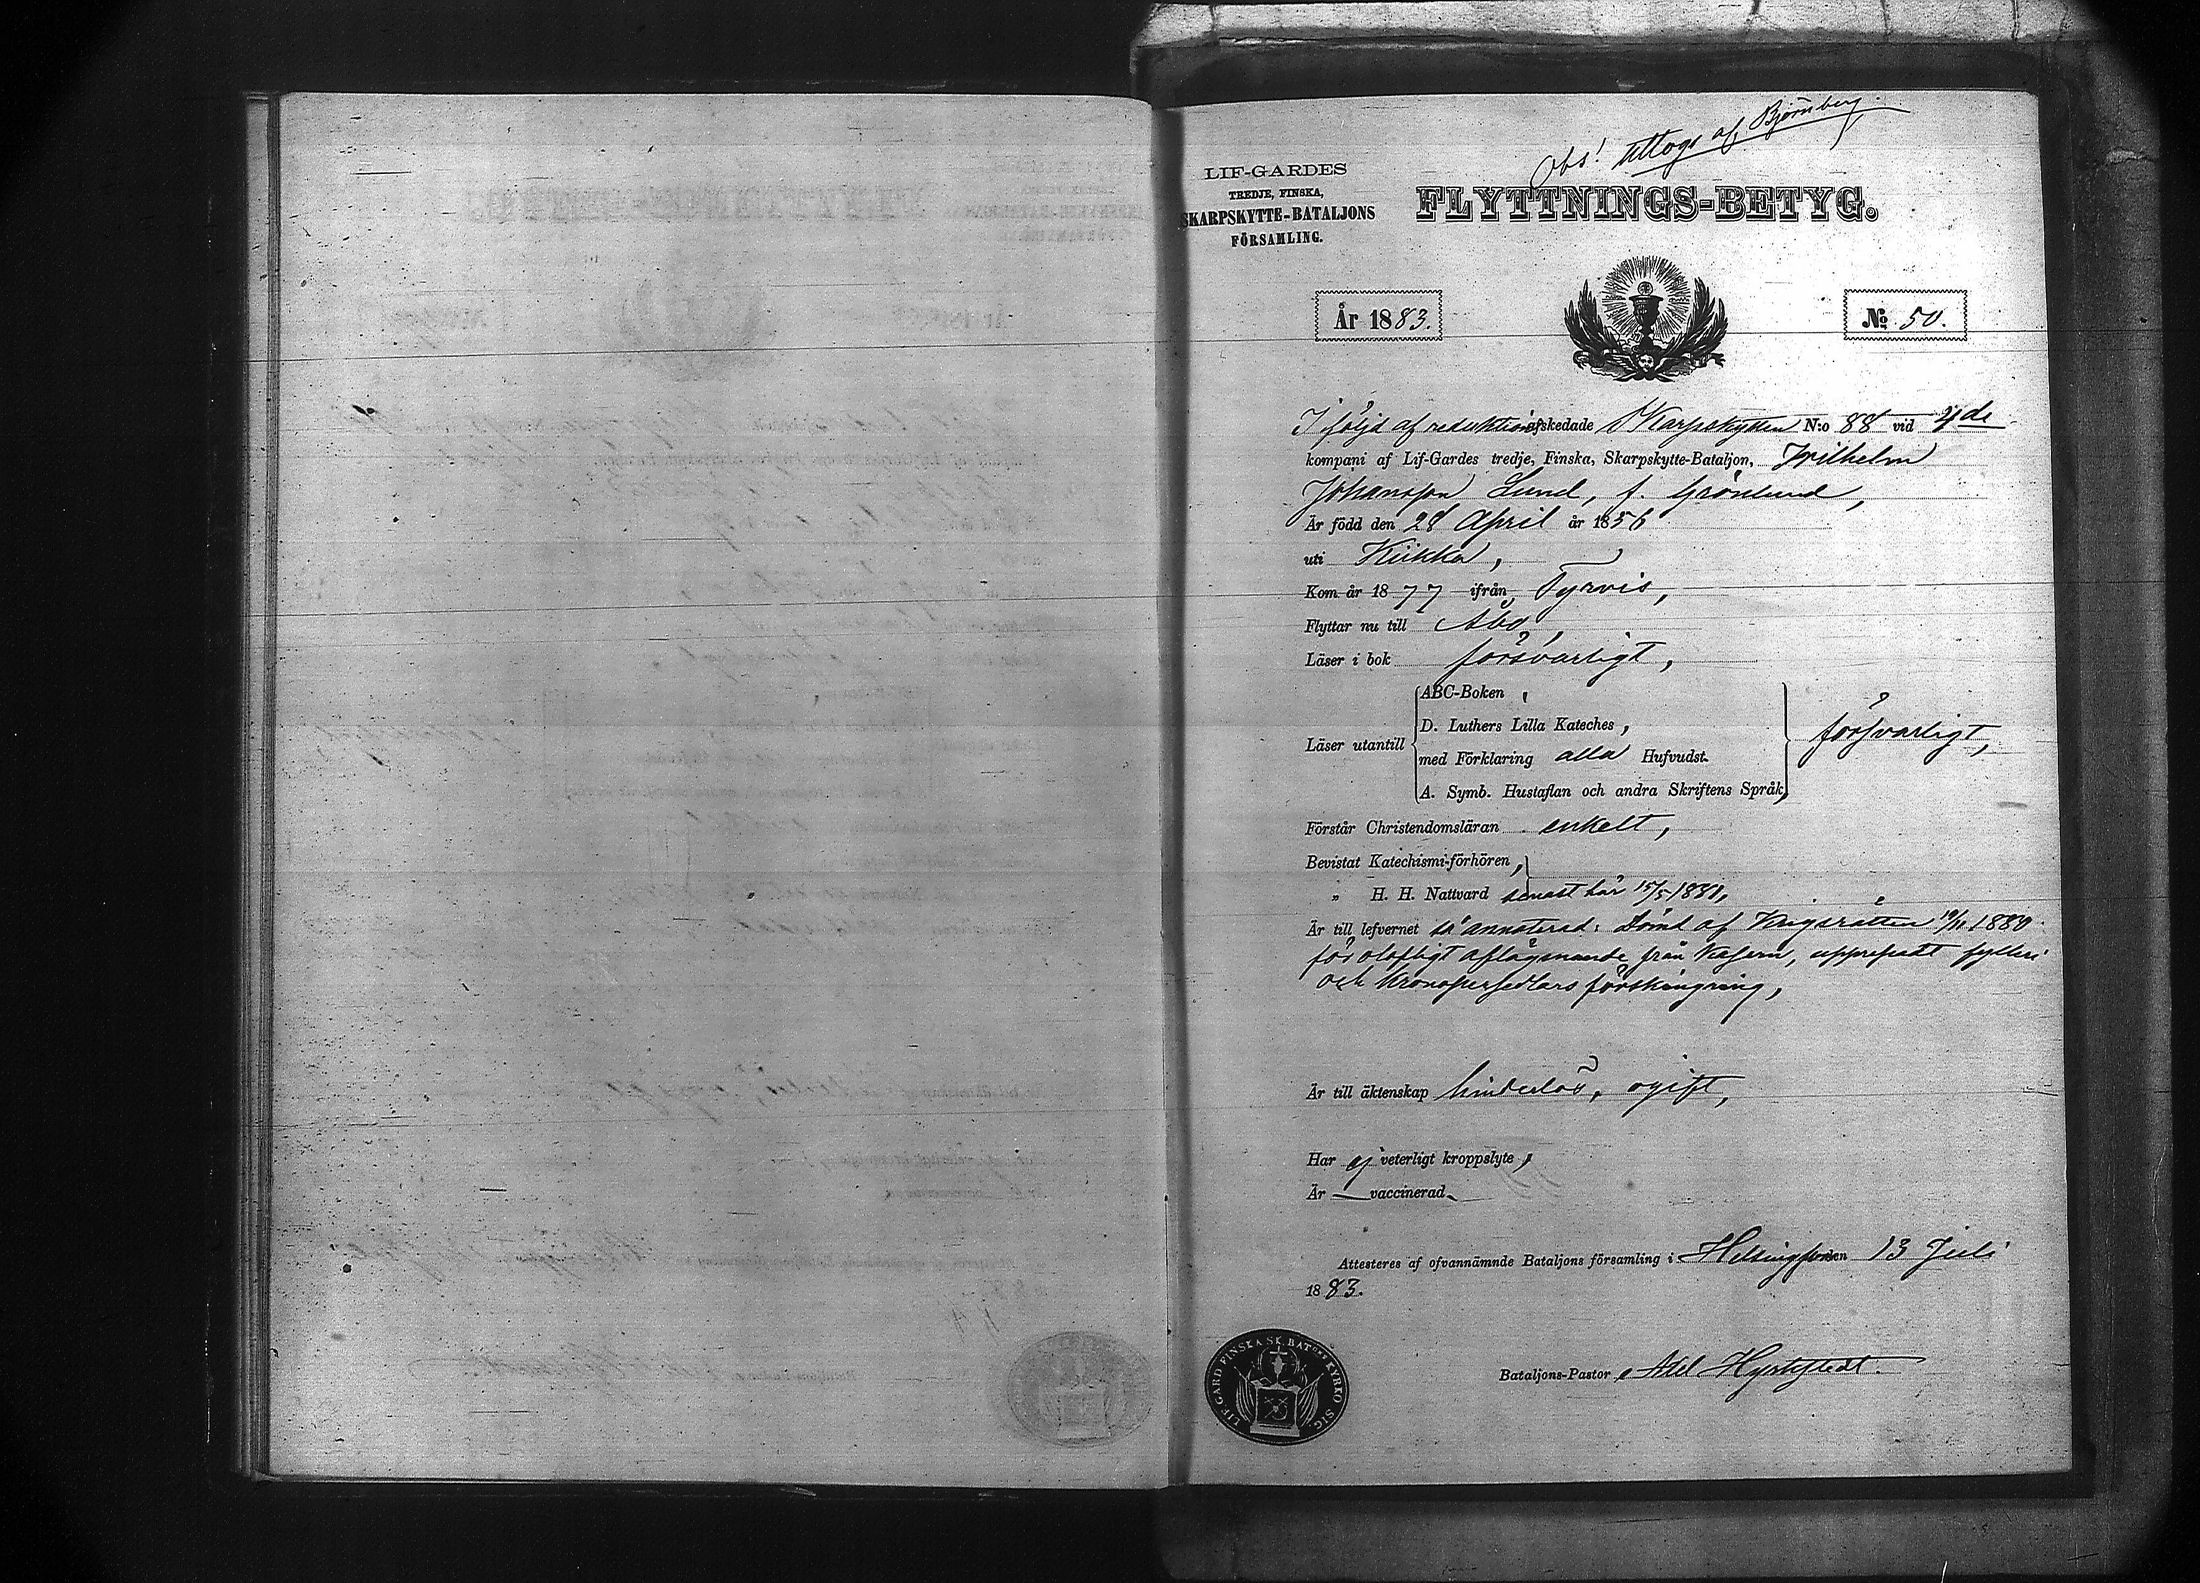 Obs! uttogs af Björnberg.
LIF-GARDES
TREDJE, FINSKA,
SKARPSKYTTE-BATALJONS
FÖRSAMLING.
FLYTTNINGS-BETYG.
År 1883.
No 50.
I följd af reduktion afskedade Skarpskytten N:o 88 vid 4de
kompani af Lif-Gardes tredje, Finska, Skarpskytte-Bataljon, Wilhelm
Johansson Lund, f. Grönlund,
Är född den 28 April år 1856
uti Kiikka,
Kom år 1877 ifrån Tyrvis,
Flyttar nu till Åbo,
Läser i bok försvarligt,
Läser utantill
ABC-Boken,
D. Luthers Lilla Kateches,
med Förklaring alla Hufvudst.
A. Symb. Hustaflan och andra Skriftens Språk,
försvarligt,
Förstår Christendomsläran enkelt,
Bevistat Katechismi-förhören,
„ H. H. Nattvard senast här 15/5 1881,
Är till lefvernet så annoterad: Dömd af Krigsrätten 19/11 1880
för olofligt aflägsnande från Kasern, upprepadt fylleri
och Kronopersedlars förskingring,
Är till äktenskap hinderlös, ogift,
Har ej veterligt kroppslyte,
Är — vaccinerad.
Attesteres af ofvannämnde Bataljons församling i Helsingfors den 13 Juli
1883.
Bataljons-Pastor
LIF-GARD FINSKA SK. BATns KYRKO SIG.